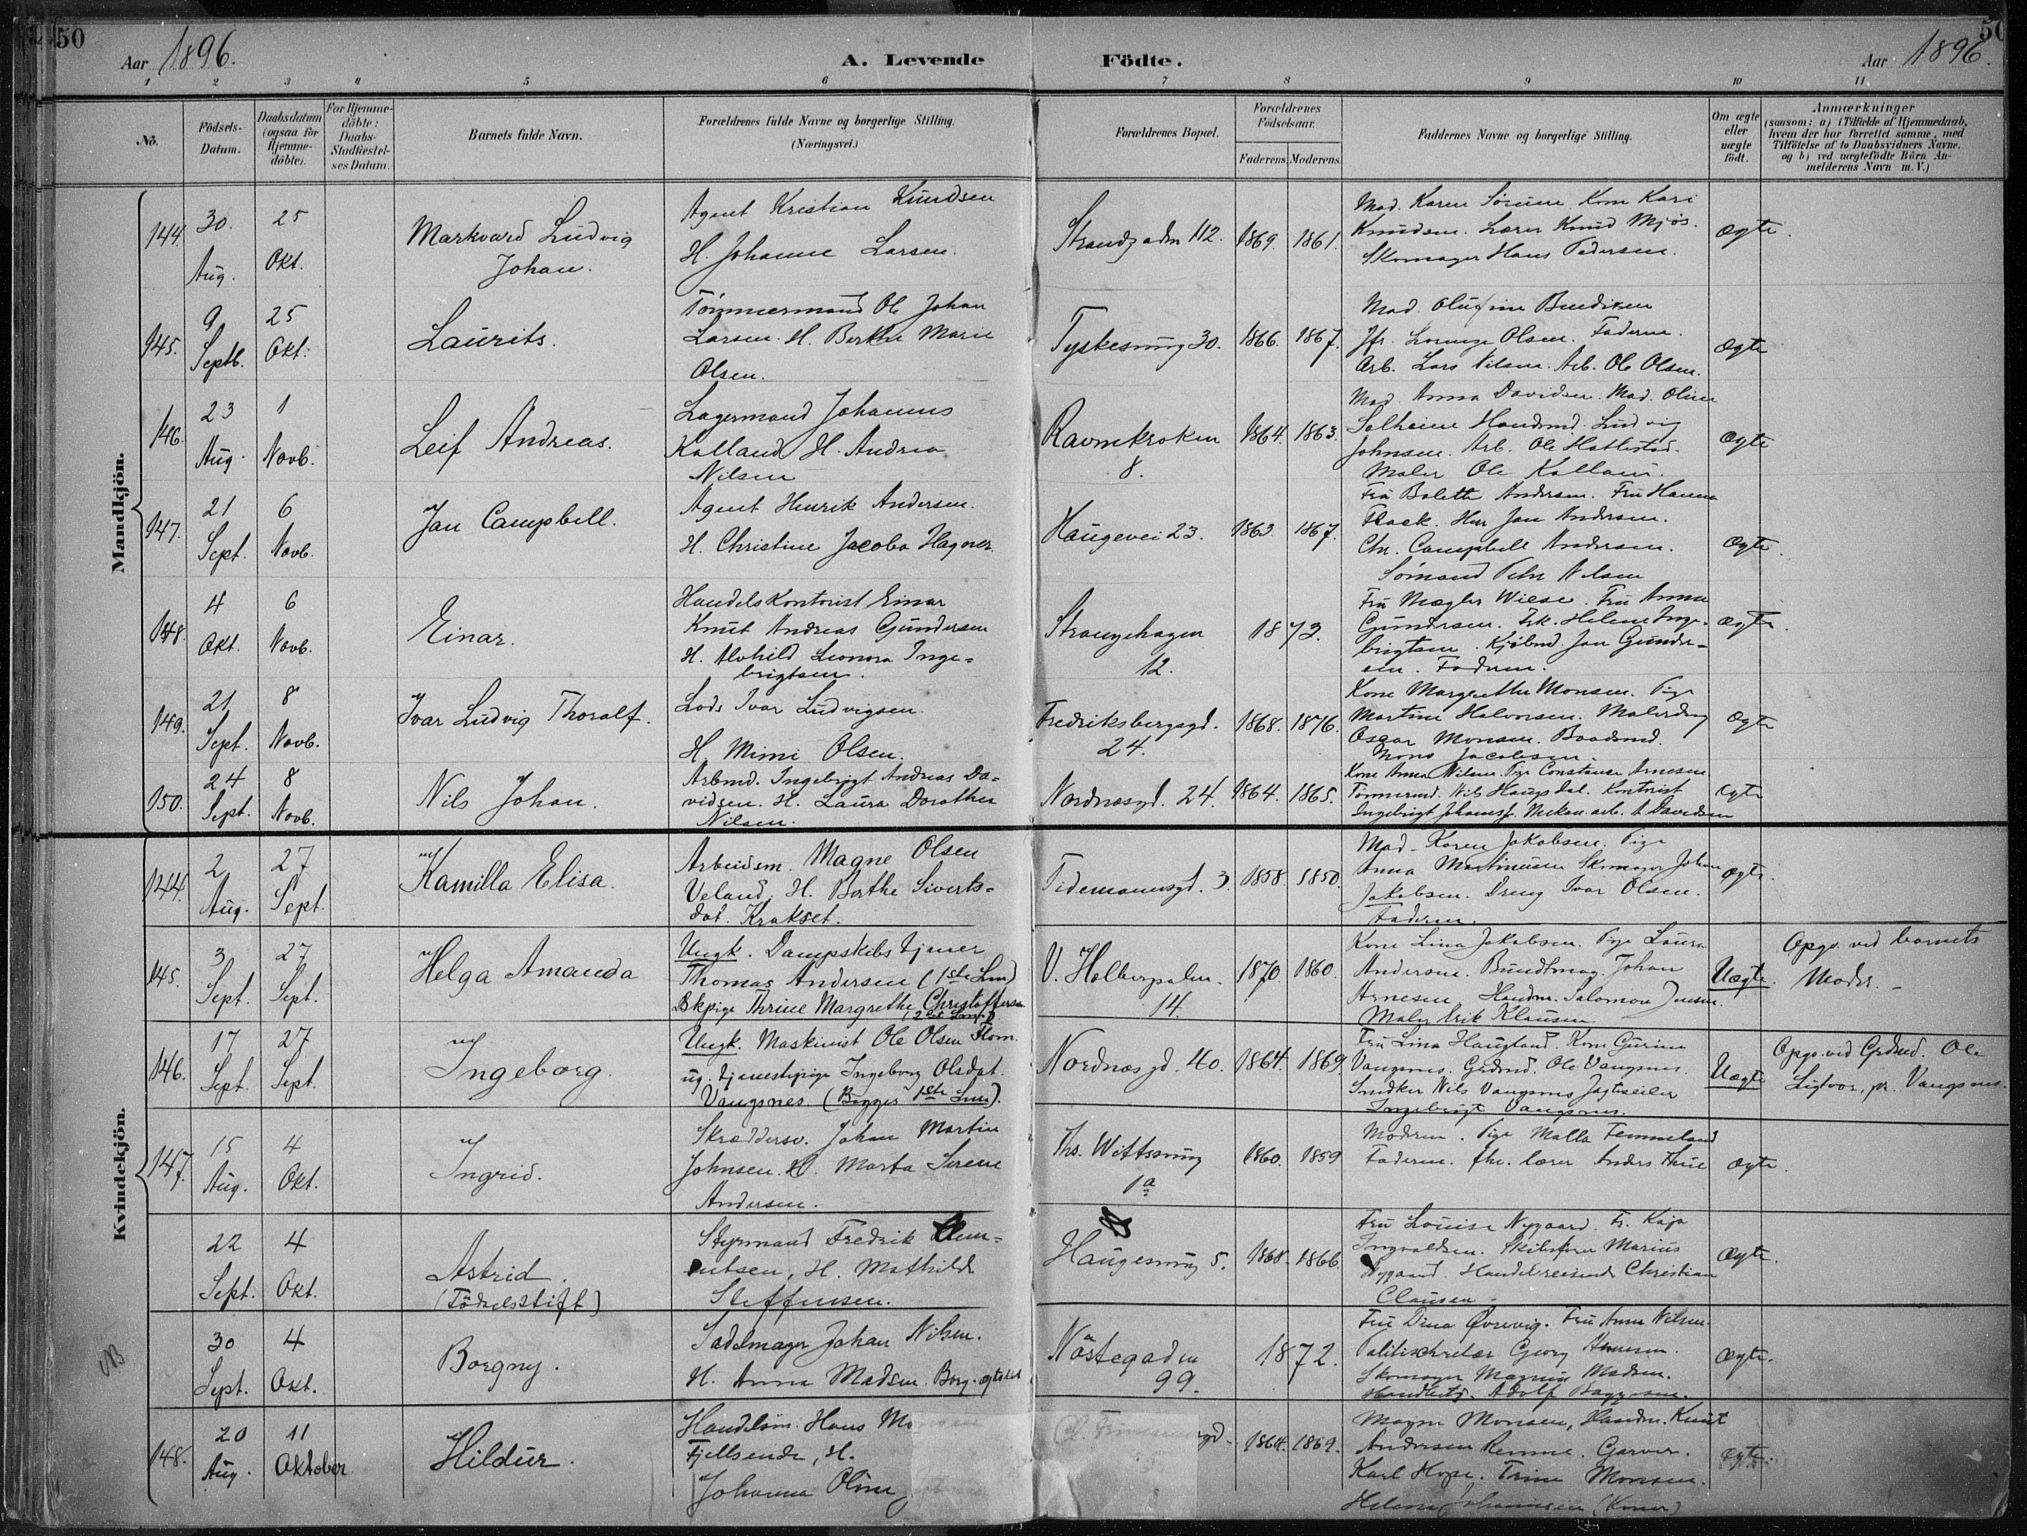 50
Aar 1896.
A. Levende
Födte.
Aar 1896.
50
1 2 3 4 5 6 7 8 9 10 11
No.
Födsels-
Datum.
Daabsdatum
(ogsaa for
Hjemme-
döbte).
For Hjemme-
döbte:
Daabs-
Stadfæstel-
ses Datum.
Barnets fulde Navn.
Forældrenes fulde Navne og borgerlige Stilling.
(Næringsvei.)
Forældrenes Bopæl.
Forældrenes
Födselsaar.
Faderens.
Moderens.
Faddernes Navne og borgerlige Stilling.
Om ægte
eller
uægte
født.
Anmærkninger
(saasom: a) i Tilfælde af Hjemmedaab,
hvem der har forrettet samme, med
Tilföielse af to Daabsvidners Navne,
og b) ved uægtefödte Börn An-
melderens Navn m. V.)
Mandkjön.
144.
30.
Aug.
25
Okt.
Markvard Ludvig
Johan.
Agent Kristian Knudsen
H. Johanne Larsen.
Strandgaden 112.
1869. 1861.
Mad. Karen Sørum. Kone Kari
Knudsen. Lærer Knud Mjøs.
Skomager Hans Pedersen.
ægte.
145.
9
Septb.
25
Okt.
Laurits.
Tømmermand Ole Johan
Larsen. H. Berthe Marie
Olsen.
Tyskesmug 30.
1866. 1867.
Jfr. Olsen. Faderen.
Arb. Lars Nilsen. Arb. Ole Olsen.
ægte
146.
23
Aug.
1
Novb.
Leif Andreas.
Lagermand Johannes
Kalland H. Andrea
Nilsen
Ravnekroken
8.
1864. 1863.
Mad. Anna Davidsen. Mad. Oline
Solheim Handmd. Ludvig
Johnsen. Arb. Ole Hatlestad.
Maler Ole Kalland.
ægte
147.
21
Sept.
6
Novb.
Jan Campbell.
Agent Henrik Andersen.
H. Christine Jacoba Hagner.
Haugevei 23.
1863 1867.
Fru Bolette Andersen. Fru Hanna
Flock. Herr Jan Andersen.
Chr. Campbell Andersen.
Sømand Peter Nilsen
ægte.
148.
4
Okt.
6
Novb.
Einar.
Handelskontorist Einar
Knut Andreas Gundersen
H. Alvhild Leonora Inge-
brigtsen.
Strangehagen
12.
1873.
Fru Mægler Wiese. Fru Anna
Gundersen. Frk. Helene Inge-
brigtsen. Kjøbmd. Jan Gunder-
sen. Faderen.
ægte.
149.
21
Sept.
8
Novb.
Ivar Ludvig Thoralf.
Lods Ivar Ludvigsen.
H. Mimi Olsen.
Fredriksbergsgd.
24.
1868. 1876.
Kone Margrethe Monsen. Pige
Martine Halvorsen. Malerdreng
Oscar Monsen. Baadsmd.
Mons Jacobsen.
ægte
150.
24
Sept.
8
Novb.
Nils Johan.
Arbmd. Ingebrigt Andreas Da-
vidsen. H. Laura Dorothea
Nilsen.
Nordnæsgd. 24.
1864. 1865.
Kone Anna Nilsen. Pige Constanse Arnesen
Tømmermd. Nils Haugsdal. Kontorist
Ingebrigt . Mekan. arb. A. Davidsen
ægte
Kvindekjön.
144.
2
Aug.
27
Sept.
Kamilla Elisa.
Arbeidsm. Magne Olsen
Veland. H. Berthe Siverts-
dat. Krakset.
Tidemannsgd. 3.
1858. 1850.
Mad. Karen Jakobsen. Pige
Anna Martinsen Skomager Johan
Jakobsen. Dreng Ivar Olsen.
Faderen.
ægte.
145.
3
Sept.
27
Sept.
Helga Amanda
Ungk. Dampskibstjener
Thomas Andersen (1ste Lm)
Thrine Margrethe Christoffersen
(2det Lm.)
V. Holbergsalm.
14.
1870. 1860.
Kone Lina Jakobsen. Pige Laura
Andersen. Bundtmag. Johan
Arnesen, Handm. Salomon Jensen.
Maler Erik Klausen.
Uægte.
Opgv. ved barnets
Moder. -
146.
17
Sept.
27
Sept.
Ingeborg.
Ungk. Maskinist Ole Olsen Flom.
ug. tjenestepige Ingeborg Olsdat.
Vangsnes. (Begges 1ste Lm).
Nordnæsgd. 40.
1864. 1869.
Fru Lina Haugland. Kone Gurine
Vangsnes. Grdmd. Ole Vangsnes.
Snedker Nils Vangsnes Jagtseiler
Ingebrigt Vangsnes.
Uægte
Opgv. ved Grdmd. Ole
Vangsnes.
147.
15
Aug.
4
Okt.
Ingrid.
Skræddersv. Johan Martin
Johnsen. H. Marta Serene
Andersen.
Ths. Wittssmug
1a
1860. 1859
Moderen. Pige Malla Femmeland
Faderen. fhv. lærer Anders Thue
ægte.
22
Sept.
4
Okt.
Astrid.
(Födselsstift)
Styrmand Fredrik Clem-
entsen, H. Mathilde
Steffensen.
Haugesmug 5.
1868. 1866.
Fru Louise Nygaard. Fr. Kaja
Ingvaldsen. Skibsfører Marius
Nygaard. Handelsreisende Christian
Clausen.
ægte.
NB
30
Sept.
4
Okt.
Borgny.
Sadelmager Johan Nilsen.
H. Anna Madsen. Borg. ægteskab
Nöstegaden
99.
1872.
Fru Dina Øvrevig. Fru Anna Nilsen.
Georg Hansen.
Skomager Magnus Madsen.
Adolf Baggesen.
ægte.
148.
20
Aug.
11
Oktober
Hildur.
Handelsm. Hans Mo
Fjellsende, H.
Johanna Oline
1864. 1869.
Magna Monsen, Handm. Knut
Andersen Remme. Garver.
Karl Hope. Trine Monsen.
Helene Johannesen (Koner)
ægte.